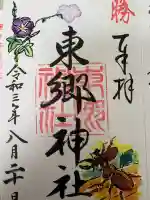 勝
奉拝
東郷神社
令和三年八月二十日